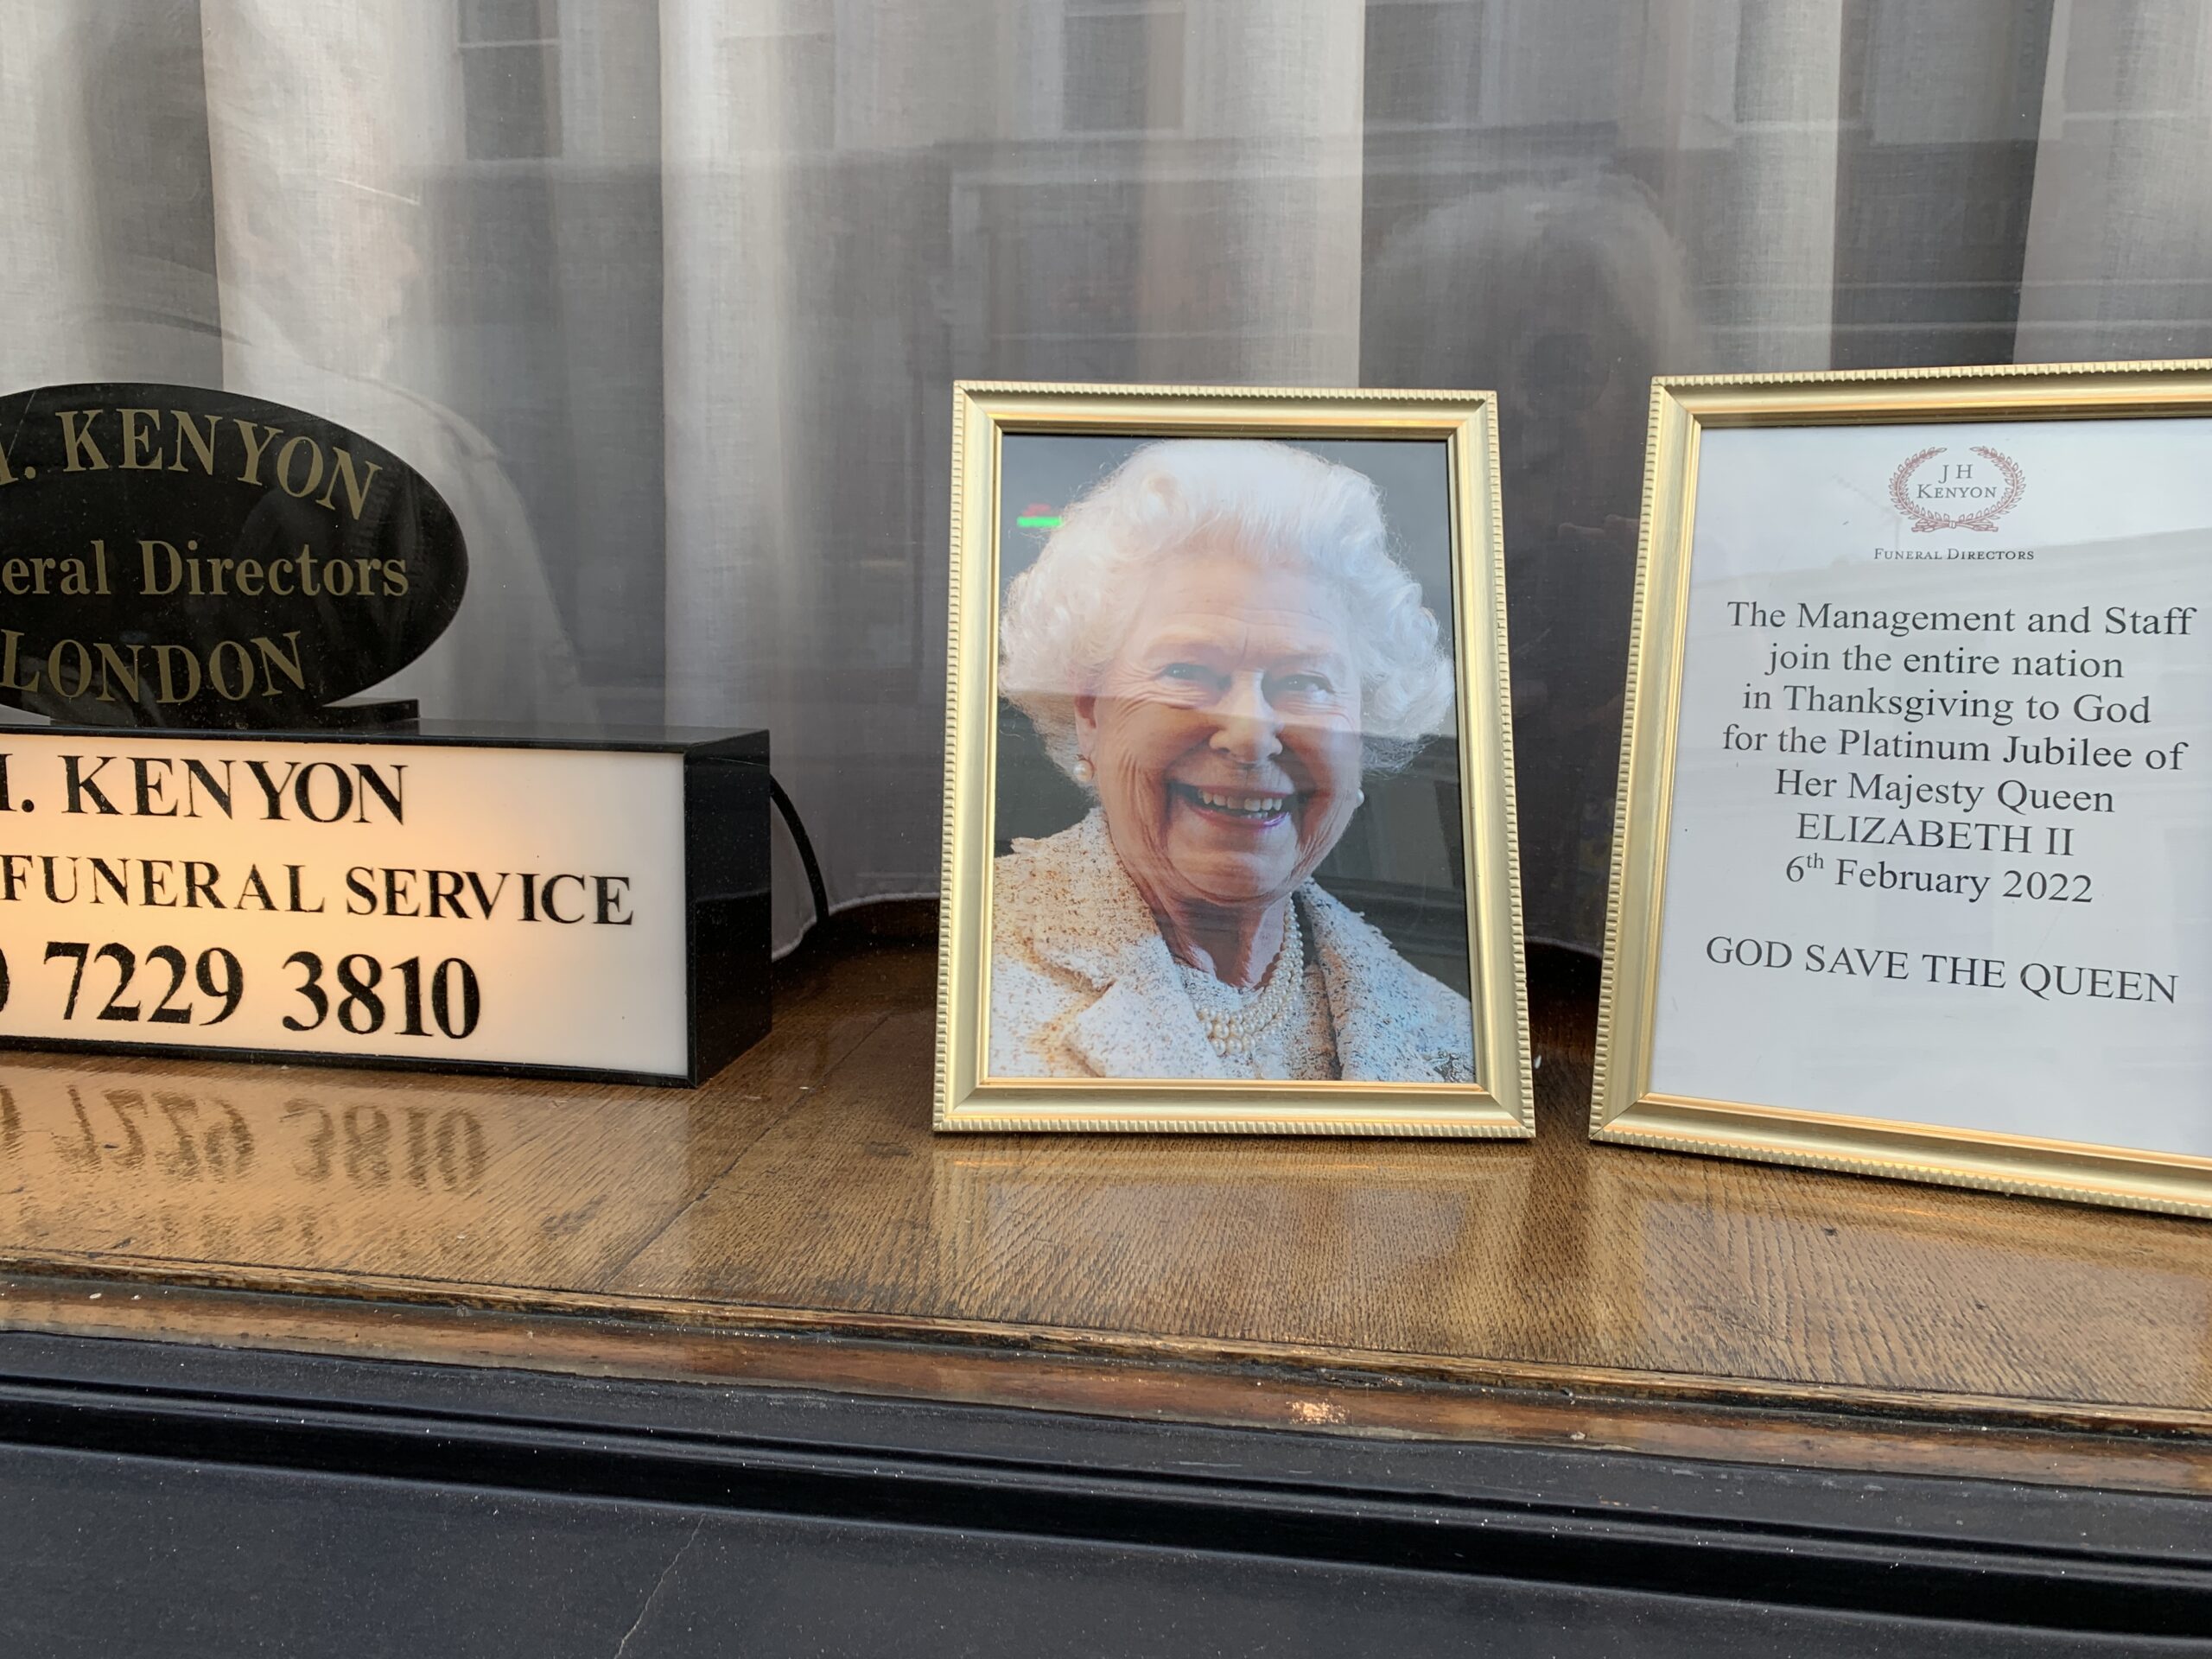 KENYON
Directors
LONDON
KENYON
FUNERAL SERVICE
7229 3810
J H
KENYON
FUNERAL DIRECTORS
The Management and Staff
join the entire nation
in Thanksgiving to God
for the Platinum Jubilee of
Her Majesty Queen
ELIZABETH II
6th February 2022
GOD SAVE THE QUEEN